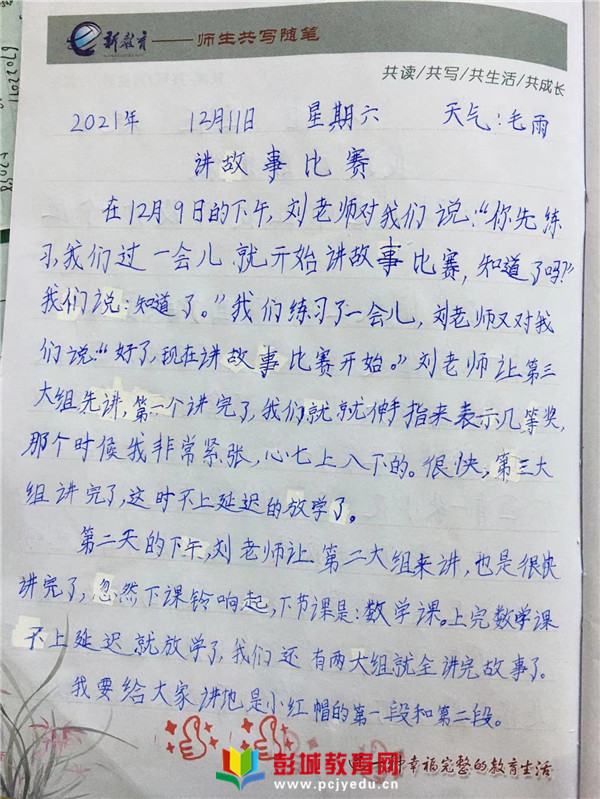 新教育——师生共写随笔
共读/共写/共生活/共成长
2021年 12月11日 星期六 天气:毛雨
讲故事比赛
在12月9日的下午,刘老师对我们说:“你先练
习,我们过一会儿就开始讲故事比赛,知道了吗?”
我们说:知道了。”我们练习了一会儿,刘老师又对我
们说:“好了,现在讲故事比赛开始。”刘老师让第三
大组先讲,第一个讲完了,我们就就伸手指来表示几等奖,
那个时候我非常紧张,心七上入下的。很快,第三大
组讲完了,这时不上延迟的放学了。
第二天的下午,刘老师让第二大组来讲,也是很快
讲完了,忽然下课铃响起,下节课是:数学课。上完数学课
不上延迟就放学了,我们还有两大组就全讲完故事了。
我要给大家讲地是小红帽的第一段和第二段。
幸福完整的教育生活
彭城教育网
www.pcjyedu.cn